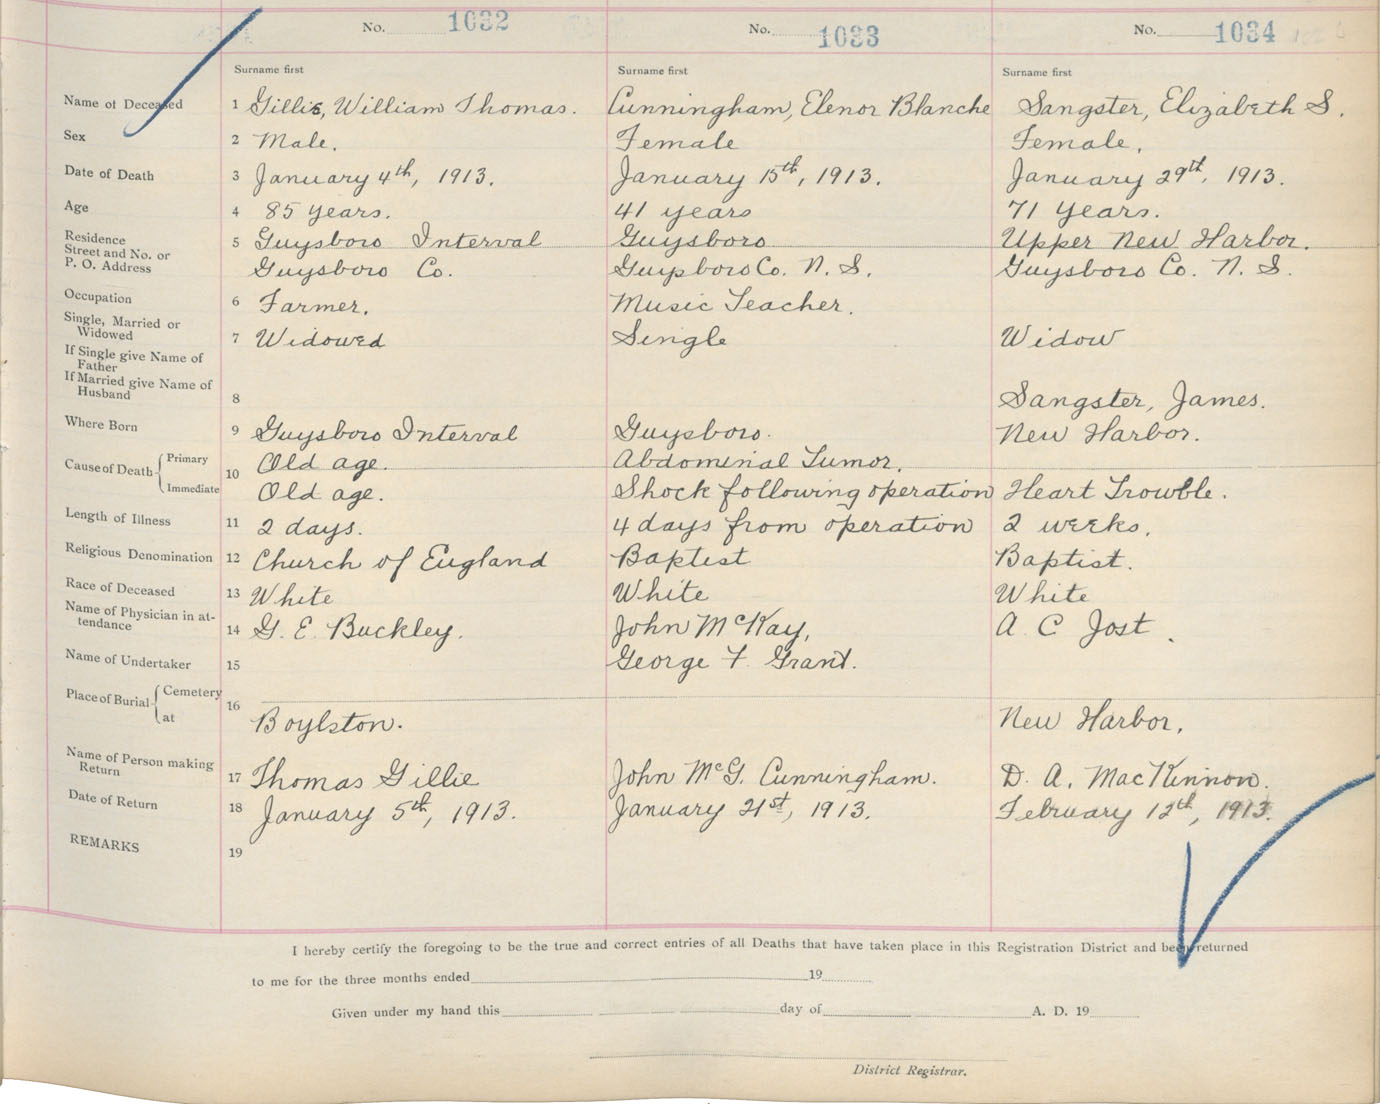 No. 1032 No. 1033 No. 1034
Surname first Surname first Surname first
Name of Deceased 1 Gillis, William Thomas. Cunningham, Elenor Blanche Sangster, Elizabeth S.
Sex 2 Male. Female Female.
Date of Death 3 January 4th, 1913. January 15th, 1913. January 29th, 1913.
Age 4 85 years. 41 years 71 years.
Residence 5 Guysboro Interval Guysboro Upper New Harbor.
Street and No. or
P. O. Address Guysboro Co. Guysboro Co. N. S. Guysboro Co. N. S.
Occupation 6 Farmer. Music Teacher.
Single, Married or
Widowed 7 Widowed Single Widow
If Single give Name of
Father
If Married give Name of
Husband 8 Sangster, James.
Where Born 9 Guysboro Interval Guysboro. New Harbor.
Cause of Death Primary 10 Old age. Abdominal Tumor.
Immediate Old age. Shock following operation Heart Trouble.
Length of Illness 11 2 days. 4 days from operation 2 weeks.
Religious Denomination 12 Church of England Baptist Baptist.
Race of Deceased 13 White White White
Name of Physician in at-
tendance 14 G. E. Buckley. John McKay, A. C. Jost.
Name of Undertaker 15 George F. Grant.
Place of Burial Cemetery 16
at Boylston. New Harbor.
Name of Person making
Return 17 Thomas Gillie John McG. Cunningham. D. A. MacKinnon.
Date of Return 18 January 5th, 1913. January 21st, 1913. February 12th, 1913.
REMARKS 19
I hereby certify the foregoing to be the true and correct entries of all Deaths that have taken place in this Registration District and been returned
to me for the three months ended 19
Given under my hand this day of A. D. 19
District Registrar.